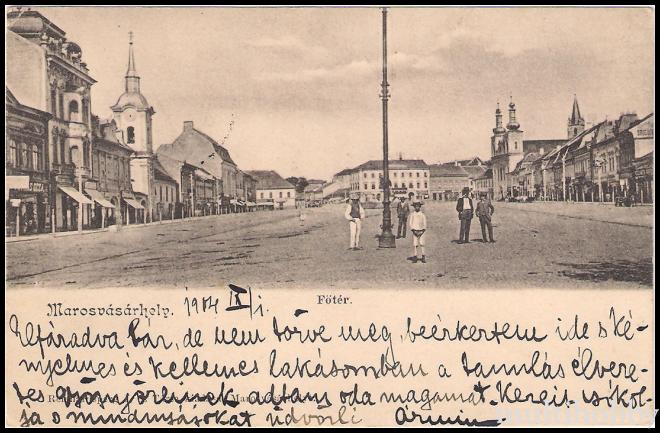 Marosvásárhely. 1904 IX/1. Főtér.
Kifáradva bár, de nem törve meg, beérkeztem ide s ké-
nyelmes és kellemes lakásomban a tanulás élveze-
tes gyönyörének adtam oda magamat.
-ja s mindnyájokat üdvözli Ármin